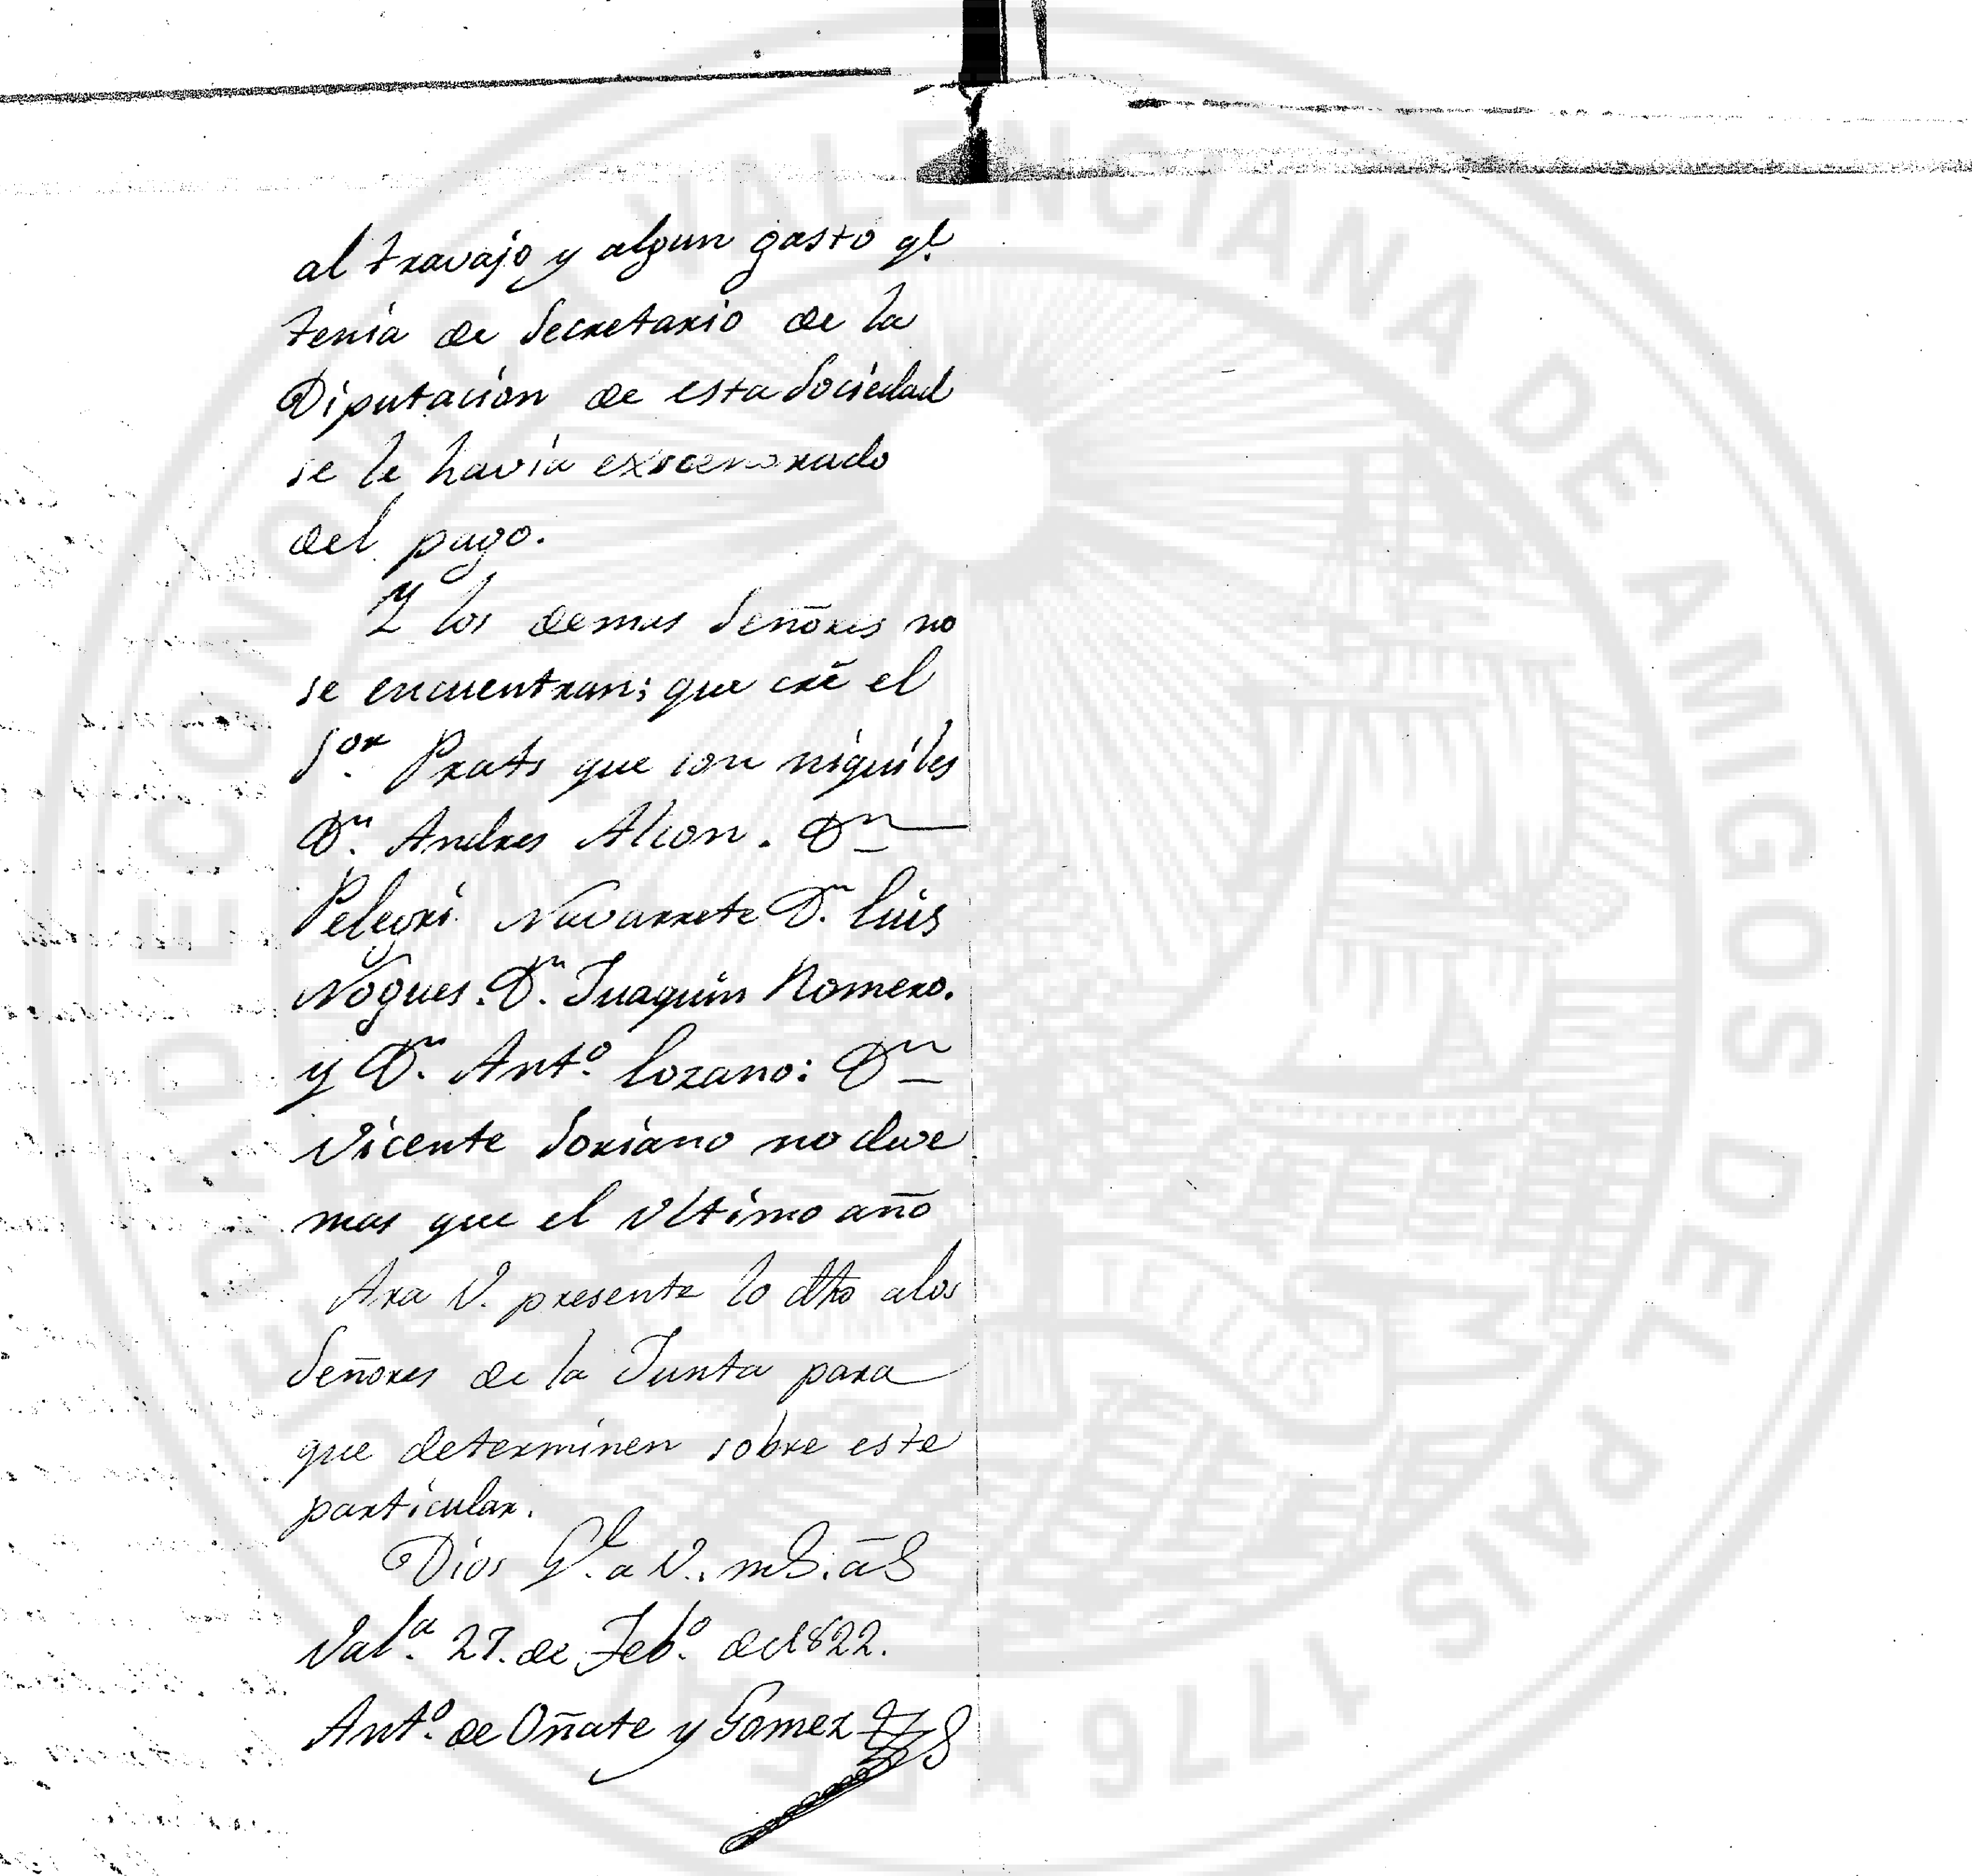 al travajo y algun gasto qe.
tenia de Secretario de la
Diputacion de esta Sociedad
se le havia exsoenorado
del pago.
Y los demas Señores no
se encuentran; que crē el
Sor. Prats que son niquiles
Dn. Andres Alcon. Dn
Pelegri Navarrete Dn. Luis
Nogues. Dn. Juaquin Romero.
y Dn. Anto. Lozano: Dn
Vicente Soriano no deve
mas que el Vltimo año
Ara V. presente lo dho alos
Señores de la Junta para
que determinen sobre este
particular.
Dios Ge. a V. mS. aS
Vala. 27. de Febo. de 1822.
Anto. de Oñate y Gomez
VALENCIANA DE AMIGOS DEL PAIS 1776 ★ REAL SOCIEDAD ECONOMICA